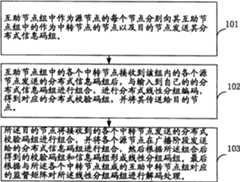 互助节点组中作为源节点的每个节点分别向其互助节
点组中的作为中转节点的节点以及目的节点发送其分
布式信息码组。
101
互助节点组中的各个中转节点接收到该组内的各个源
节点发送的分布式信息码组后，与输入到自己的的分
布式信息码组进行组合，进行分布式线性分组编码，
得到对应的分布式校验码组，并将其传送给目的节
点。
102
所述目的节点将接收到的各个中转节点发送的分布式
校验码组进行组合，并将各个源节点在广播阶段发送
给的分布式信息码组进行组合，然后根据所述组合后
得到的校验码组和信息码组形成线性分组码组，最后
根据与所述各个中转节点互助的线性分组码组中对应
的监督矩阵对所述线性分组码组进行解码处理。
103